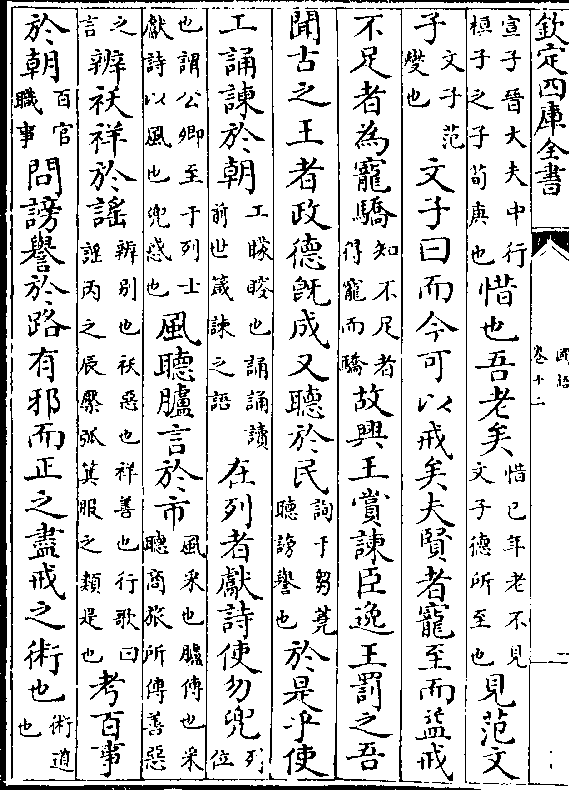 欽定四庫全書
國語
卷十二
宣子晉大夫中行桓子之子荀庚也惜也吾老矣惜已年老不見文子德所至也見范文
子文子范燮也文子曰而今可以戒矣夫賢者寵至而益戒
不足者為寵驕知不足者得寵而驕故興王賞諫臣逸王罰之吾
聞古之王者政德旣成又聽於民詢于芻蕘聽謗譽也於是乎使
工誦諫於朝工矇瞍也誦誦讀前世箴諫之語在列者獻詩使勿兜列位
也謂公卿至于列士獻詩以風也兜惑也風聽臚言於市風采也臚傳也采聽商旅所傳善惡
之言辨祅祥於謠辨別也祅惡也祥善也行歌曰謡丙之辰檿弧箕服之類是也考百事
於朝百官職事問謗譽於路有邪而正之盡戒之術也術道也